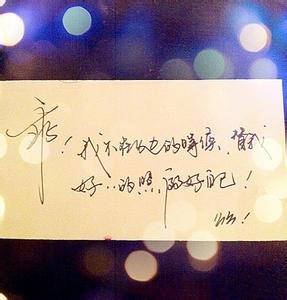 乖！我不在的时候，替我
好好的照顾好自己！